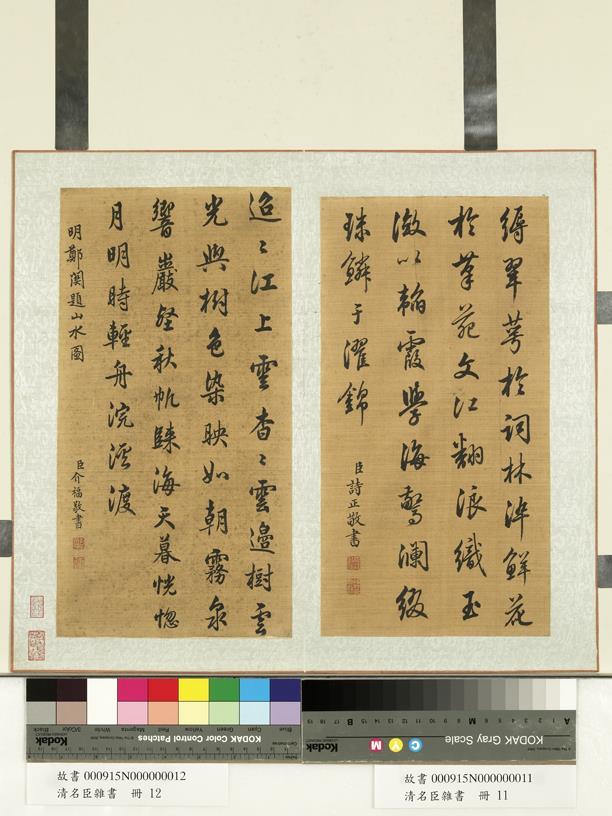 縟翠萼於詞林綷鮮花
於筆苑文江翻浪織玉
漵以韜霞學海驚瀾綴
珠鱗于濯錦
臣詩正敬書
迢〻江上雲杳〻雲邊樹雲
光與樹色染映如朝霧泉
響巖壑秋帆歸海天暮恍惚
月明時輕舟浣溪渡
明鄭関題山水圖
臣介福敬書
KODAK Color Control Patches
Kodak
Blue Cyan Green Yellow Red Magenta White 3/Color Black
KODAK Gray Scale
Kodak
C Y M
A 1 2 3 4 5 6 M 8 9 10 11 12 13 14 15 B 17 18 19
故書 000915N000000012
清名臣雜書 冊 12
故書 000915N000000011
清名臣雜書 冊 11